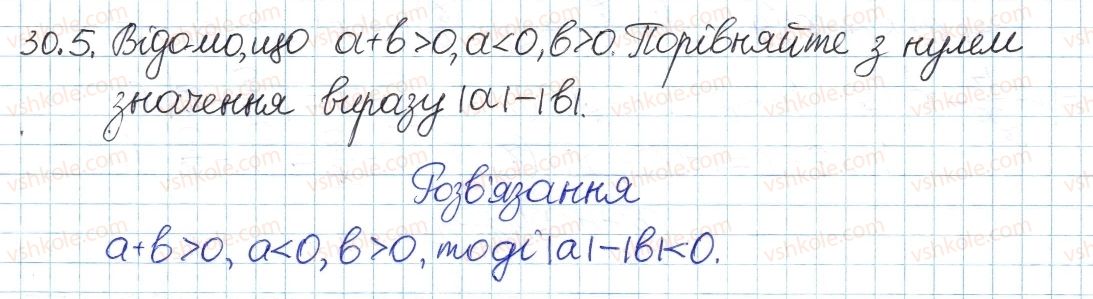 30.5. Відомо, що a+b>0, a<0, b>0. Порівняйте з нулем
значення виразу |a|-|b|.
Розв'язання
a+b>0, a<0, b>0, тоді |a|-|b|<0.